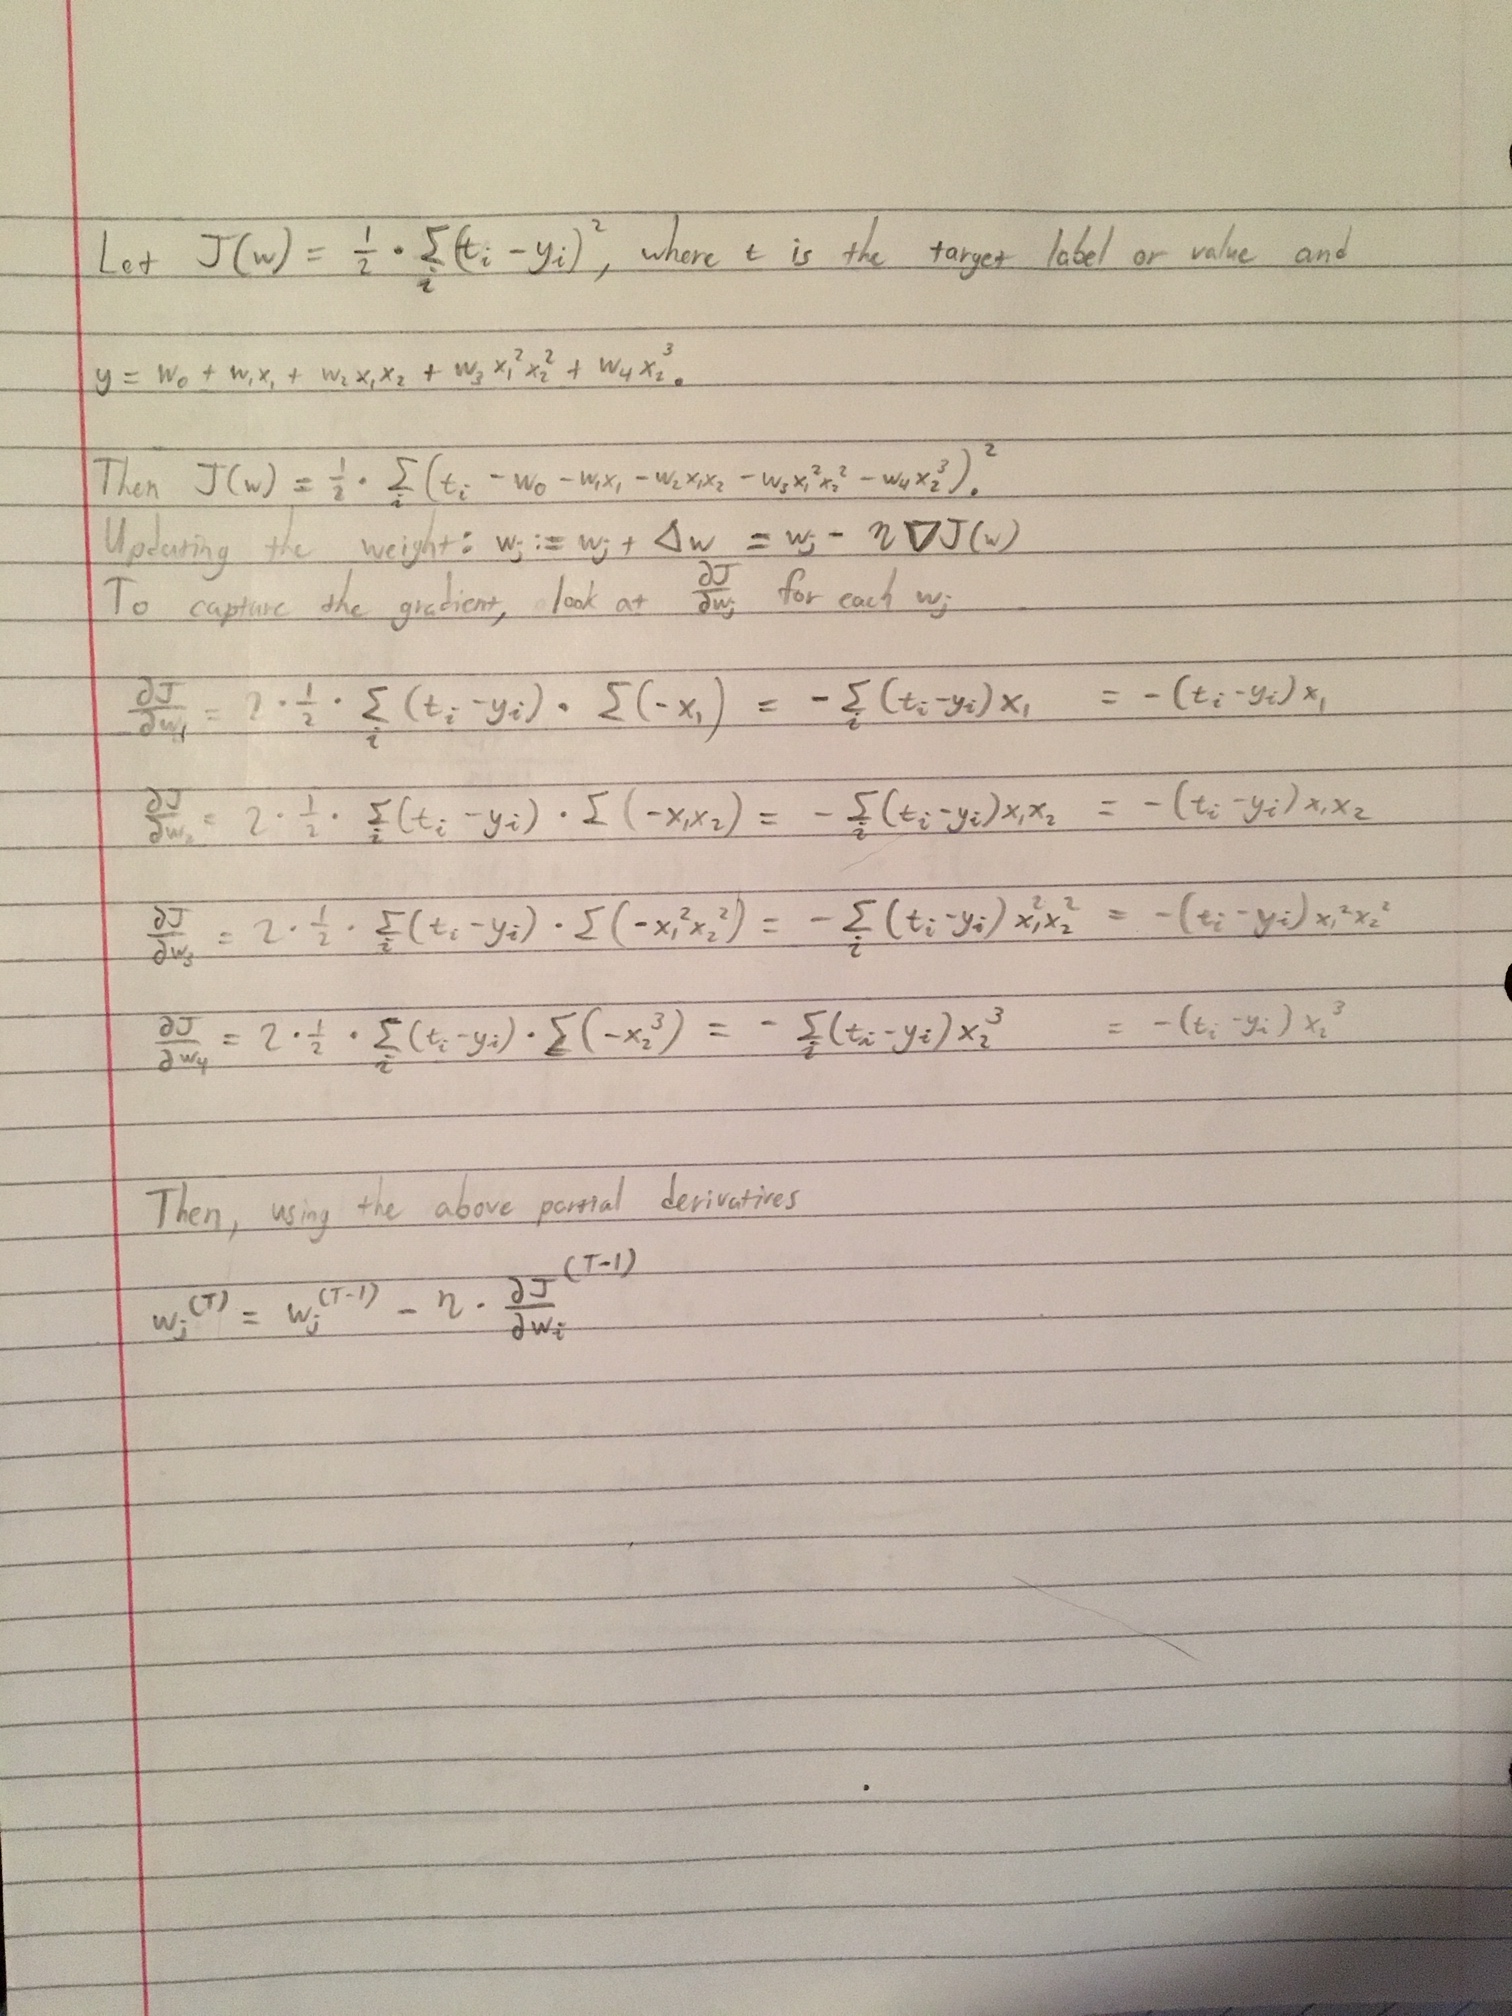 Let J(w) = 1/2 · Σ_i (t_i - y_i)^2, where t is the target label or value and
y = w_0 + w_1x_1 + w_2x_1x_2 + w_3x_1^2x_2^2 + w_4x_2^3.
Then J(w) = 1/2 · Σ_i (t_i - w_0 - w_1x_1 - w_2x_1x_2 - w_3x_1^2x_2^2 - w_4x_2^3)^2.
Updating the weight: w_j := w_j + Δw = w_j - η∇J(w)
To capture the gradient, look at ∂J/∂w_j for each w_j
∂J/∂w_1 = 2 · 1/2 · Σ_i (t_i - y_i) · Σ(-x_1) = -Σ_i (t_i - y_i)x_1 = -(t_i - y_i)x_1
∂J/∂w_2 = 2 · 1/2 · Σ_i (t_i - y_i) · Σ(-x_1x_2) = -Σ_i (t_i - y_i)x_1x_2 = -(t_i - y_i)x_1x_2
∂J/∂w_3 = 2 · 1/2 · Σ_i (t_i - y_i) · Σ(-x_1^2x_2^2) = -Σ_i (t_i - y_i)x_1^2x_2^2 = -(t_i - y_i)x_1^2x_2^2
∂J/∂w_4 = 2 · 1/2 · Σ_i (t_i - y_i) · Σ(-x_2^3) = -Σ_i (t_i - y_i)x_2^3 = -(t_i - y_i)x_2^3
Then, using the above partial derivatives
w_j^(T) = w_j^(T-1) - η · ∂J/∂w_i^(T-1)